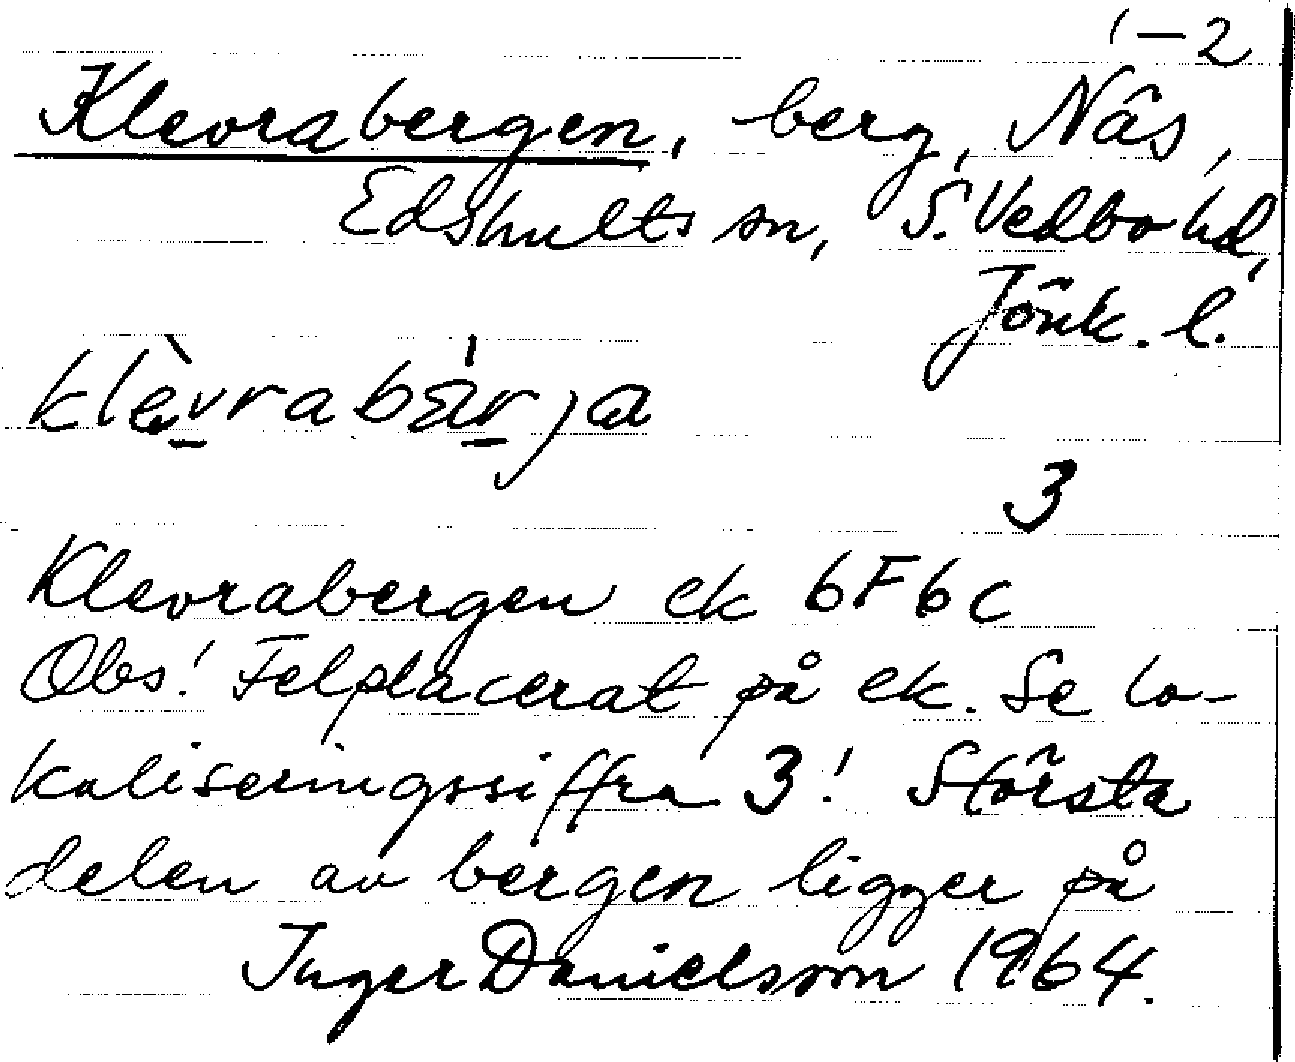 1-2
Klevrabergen, berg, Näs,
Edshults sn, S. Vedbo hd,
Jönk. l.
klèvrabárja
3
Klevrabergen ek 6F6c
Obs! Felplacerat på ek. Se lo-
kaliseringssiffra 3! Största
delen av bergen ligger på
Inger Danielsson 1964.